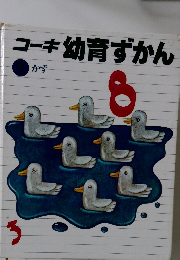 コーキ 幼育ずかん
かず
8
3